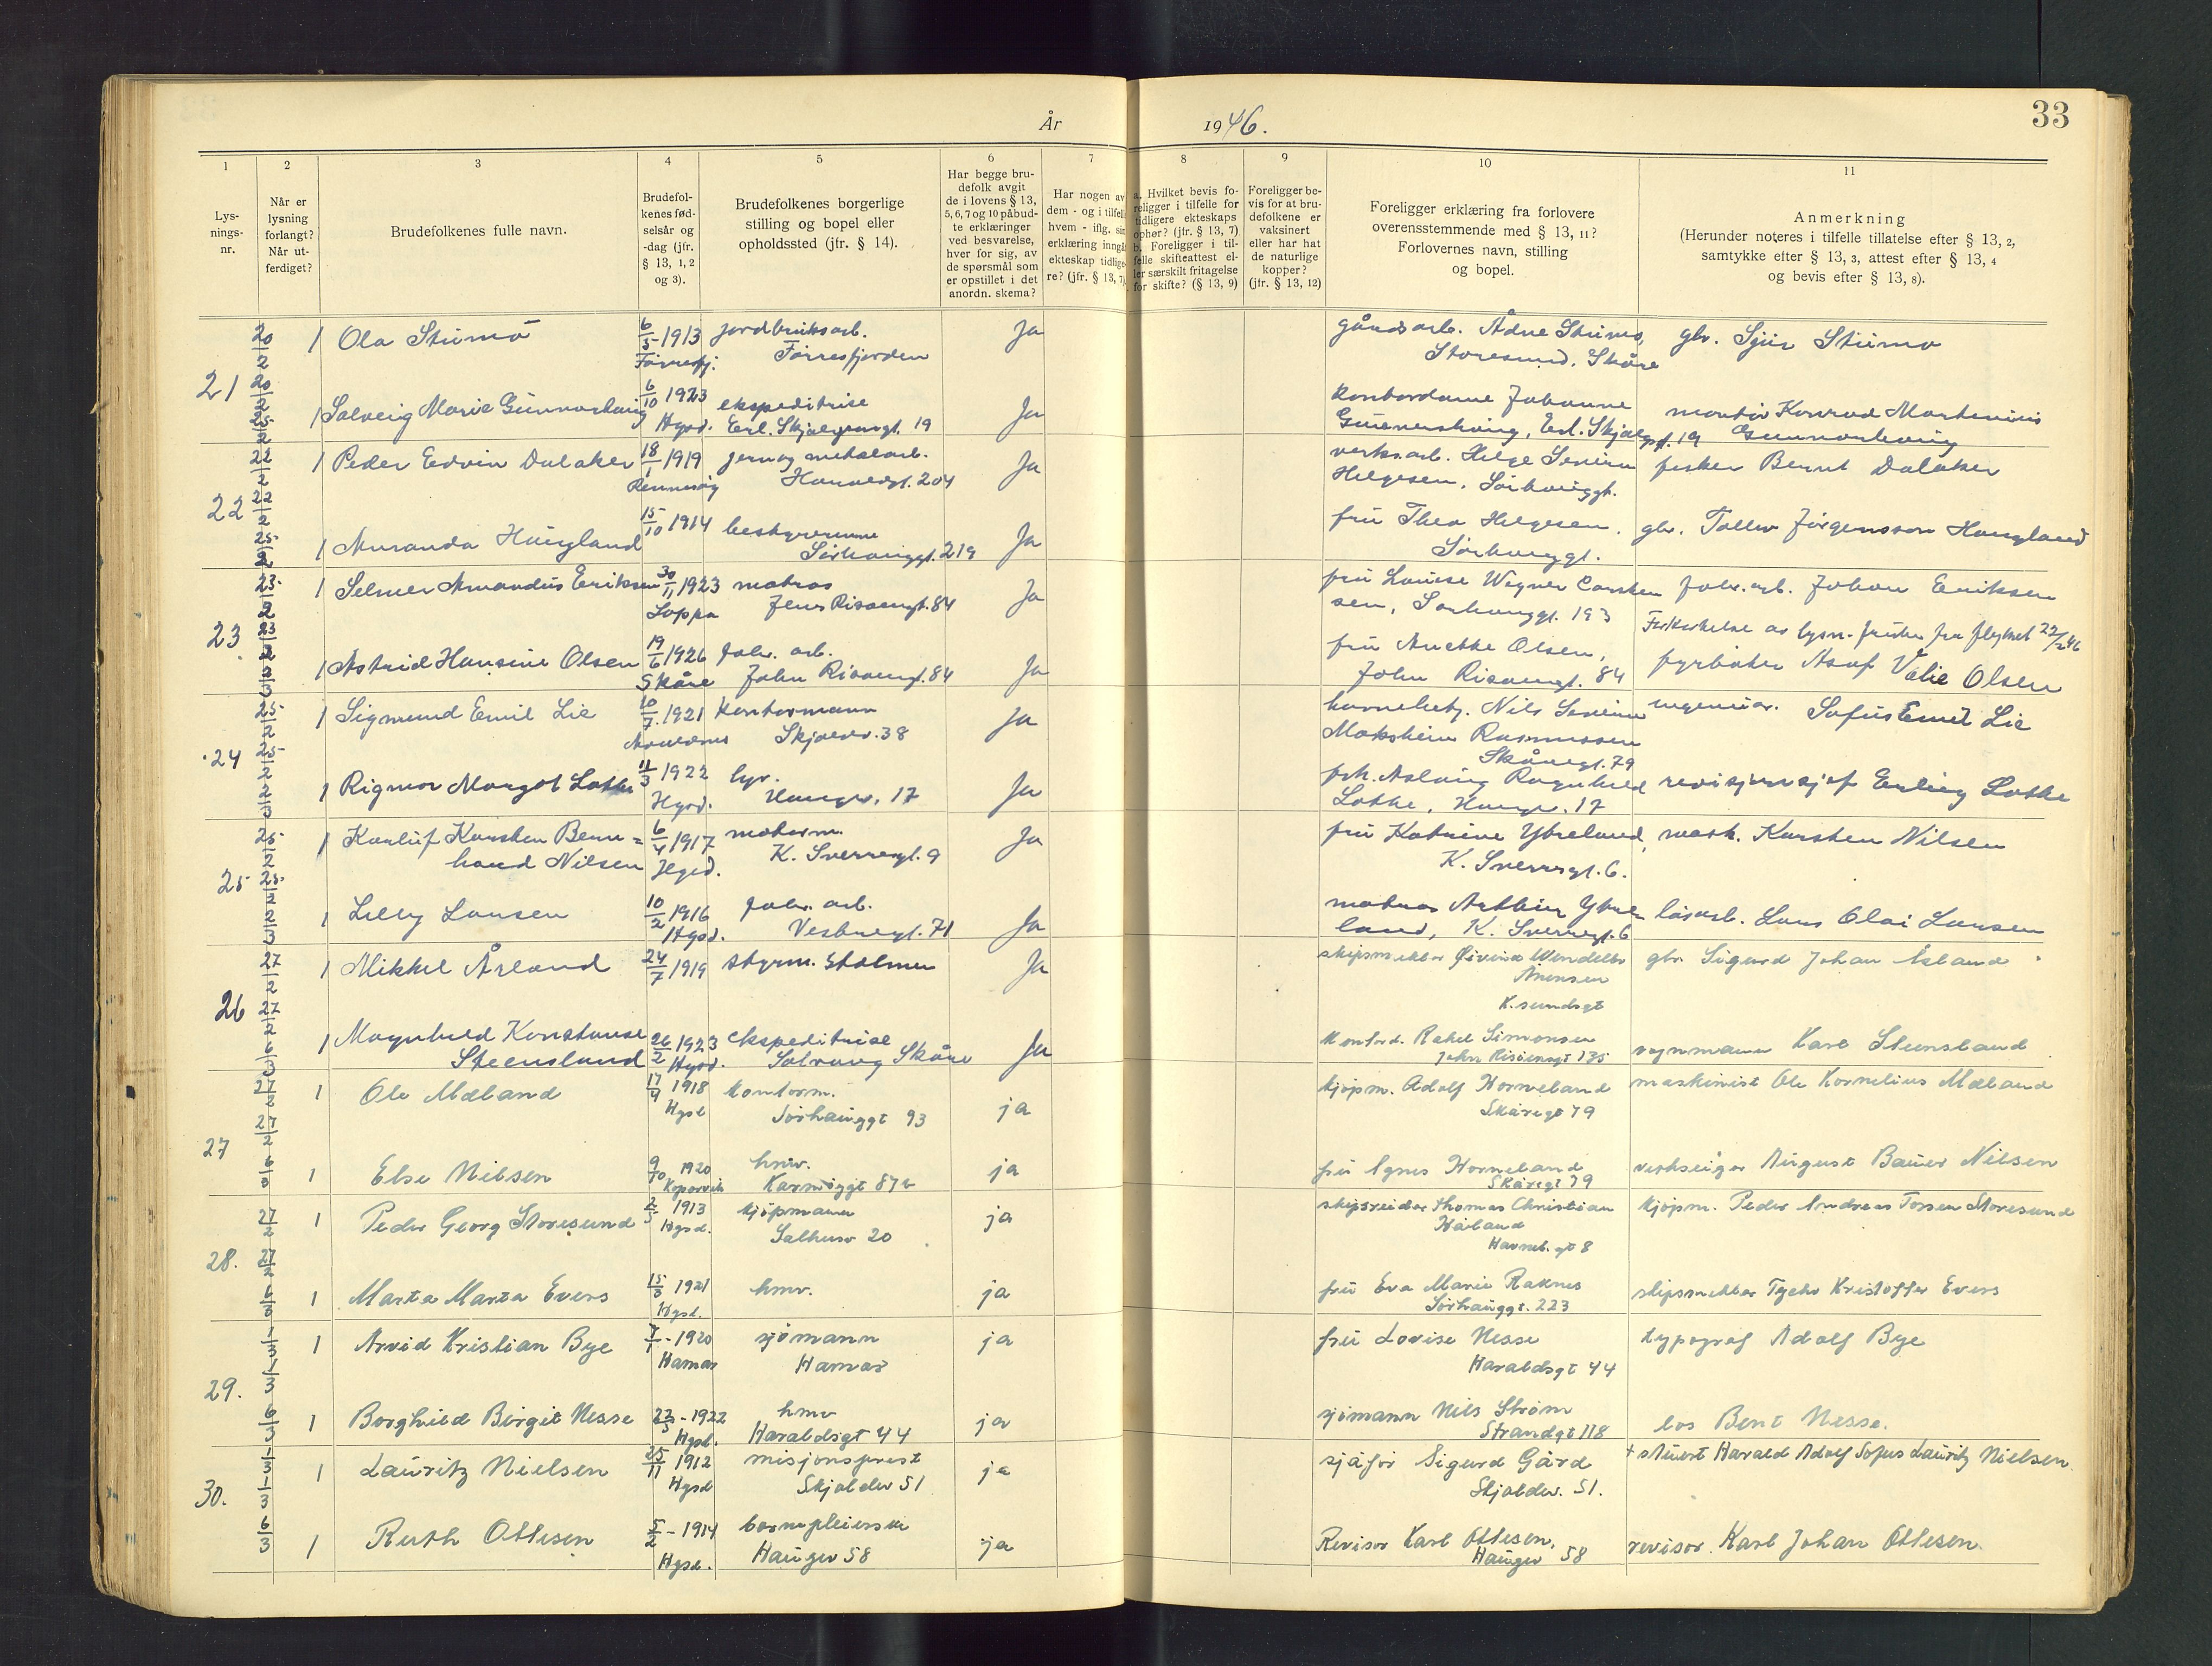 År 1946.
33
1
2
3
4
5
6
7
8
9
10
11
Lysnings-nr.
Når er lysning forlangt? Når utferdiget?
Brudefolkenes fulle navn.
Brudefolkenes fødselsår og -dag (jfr. § 13, 1, 2 og 3).
Brudefolkenes borgerlige stilling og bopel eller opholdssted (jfr. § 14).
Har begge brudefolk avgit de i lovens § 13, 5, 6, 7 og 10 påbudte erklæringer ved besvarelse, hver for sig, av de spørsmål som er opstillet i det anordn. skema?
Har nogen av dem - og i tilfelle hvem - iflg. sin erklæring inngått ekteskap tidligere? (jfr. § 13, 7)
a. Hvilket bevis foreligger i tilfelle for tidligere ekteskaps ophør? (jfr. § 13, 7)
b. Foreligger i tilfelle skifteattest eller særskilt fritagelse for skifte? (§ 13, 9)
Foreligger bevis for at brudefolkene er vaksinert eller har hat de naturlige kopper? (jfr. § 13, 12)
Foreligger erklæring fra forlovere overensstemmende med § 13, 11? Forlovernes navn, stilling og bopel.
Anmerkning
(Herunder noteres i tilfelle tillatelse efter § 13, 2, samtykke efter § 13, 3, attest efter § 13, 4 og bevis efter § 13, 8).
21
20/2 1 Ola Stumo 6/5 1913 jordbruksarb. Ja gårdsarb. Ådne Stumo, gbr. Sjur Stumo
Førresfj. Førresfjorden Storesund. Skåre
20/2 25/2 1 Solveig Marie Gunnarshaug 6/10 1923 ekspeditrise Ja kontordame Johanne montør Konrad Martinius
Hgsd. Erl. Skjalgsongt. 19 Gunnarshaug, Erl. Skjalgsgt. 19 Gunnarshaug
22
22/2 1 Peder Edvin Dalaker 18/1 1919 jern og metalarb. Ja verksarb. Helge Severin fisker Bernt Dalaker
Rennesøy Haraldsgt. 204 Helgesen, Sørhauggt.
22/2 25/2 1 Amanda Haugland 15/10 1914 bestyrerinne Ja fru Thea Helgesen. gbr. Tollev Jørgensson Haugland
Sørhauggt. 219 Sørhauggt.
23
23/2 1 Selmer Amandus Eriksen 30/11 1923 matros Ja fru Louise Wegner Carsten fabr. arb. Johan Eriksen
Loppa Jens Risøengt. 84 sen, Sørhauggt. 193
av lysn. 22/2 46
23/2 2/3 1 Astrid Hansine Olsen 19/6 1926 fabr. arb. Ja fru Anette Olsen, fyrbøter Asaf Valie Olsen
Skåre John Risøengt. 84 John Risøengt. 84
24
25/2 1 Sigmund Emil Lie 10/7 1921 kontormann Ja havnebetj. Nils Severin ingeniør. Sofus Emil Lie
Skjoldv. 38 Rasmussen
Skåregt. 79
25/2 2/3 1 Rigmor Margot Lothe 11/3 1922 Ja frk. Aslaug Ragnhild revisjonssjef Erling Lothe
Hgsd. Haugv. 17 Lothe, Haugv. 17
25
25/2 1 Karluf Karsten Bern= 6/4 1917 motorm. Ja fru Katrine Ytreland, mask. Karsten Nilsen
hard Nilsen Hgsd. K. Sverresgt. 9 K. Sverresgt. 6.
25/2 2/3 1 Lilly Larsen 10/2 1916 fabr. arb. Ja matros Arthur Ytre løsarb. Lars Olai Larsen
Hgsd. Vestregt. 71 land, K. Sverresgt. 6
26
27/2 1 Mikkel Årland 24/7 1919 styrm. Stolmen Ja skipsmekler Øivind Wendelbo gbr. Sigurd Johan Årland
Amonsen
K. sundsgt
27/2 6/3 1 Magnhild Konstanse 26/2 1923 ekspeditrise Ja kontord. Rakel Simonsen vognmann Karl Steensland
Steensland Hgsd. Salvåg Skåre John Risøensgt 135
27
27/2 1 Ole Mæland 17/4 1918 kontorm. ja kjøpm. Adolf Horneland maskinist Ole Kornelius Mæland
Hgsd Sørhauggt 93 Skåregt 79
27/2 6/3 1 Else Nilsen 9/10 1920 hmv. ja fru Agnes Horneland verkseier August Bauer Nilsen
Kopervik Karmøygt 87b Skåregt 79
28.
27/2 1 Peder Georg Storesund 2/5 1913 kjøpmann ja skipsreider Thomas Christian kjøpm. Peder Andreas Torsen Storesund
Hgsd. Salhusv 20 Håland
Havneb. gt 8
27/2 6/3 1 Marta Marta Evers 15/3 1921 hmv. ja fru Eva Marie Raknes skipsmekler Tycho Kristoffer Evers
Hgsd. Sørhauggt. 223
29.
1/3 1 Arvid Kristian Bye 7/1 - 1920 sjømann ja fru Lovise Nesse typograf Adolf Bye
Hamar Hamar Haraldsgt 44
1/3 6/3 1 Borghild Birgit Nesse 22/5 - 1922 hmv ja sjømann Nils Strøm los Bent Nesse.
Hgsd. Haraldsgt 44 Strandgt 118
30.
1/3 1 Lauritz Nielsen 25/11 1912 misjonsprest ja sjåfør Sigurd Gård + stuert Harald Adolf Sofus Lauritz Nielsen
Hgsd Skjoldev 51 Skjoldev. 51.
1/3 6/3 1 Ruth Ottesen 5/2 - 1914 barnepleierske ja Revisor Karl Ottesen, revisor Karl Johan Ottesen.
Hgsd. Haugev 58 Haugev 58